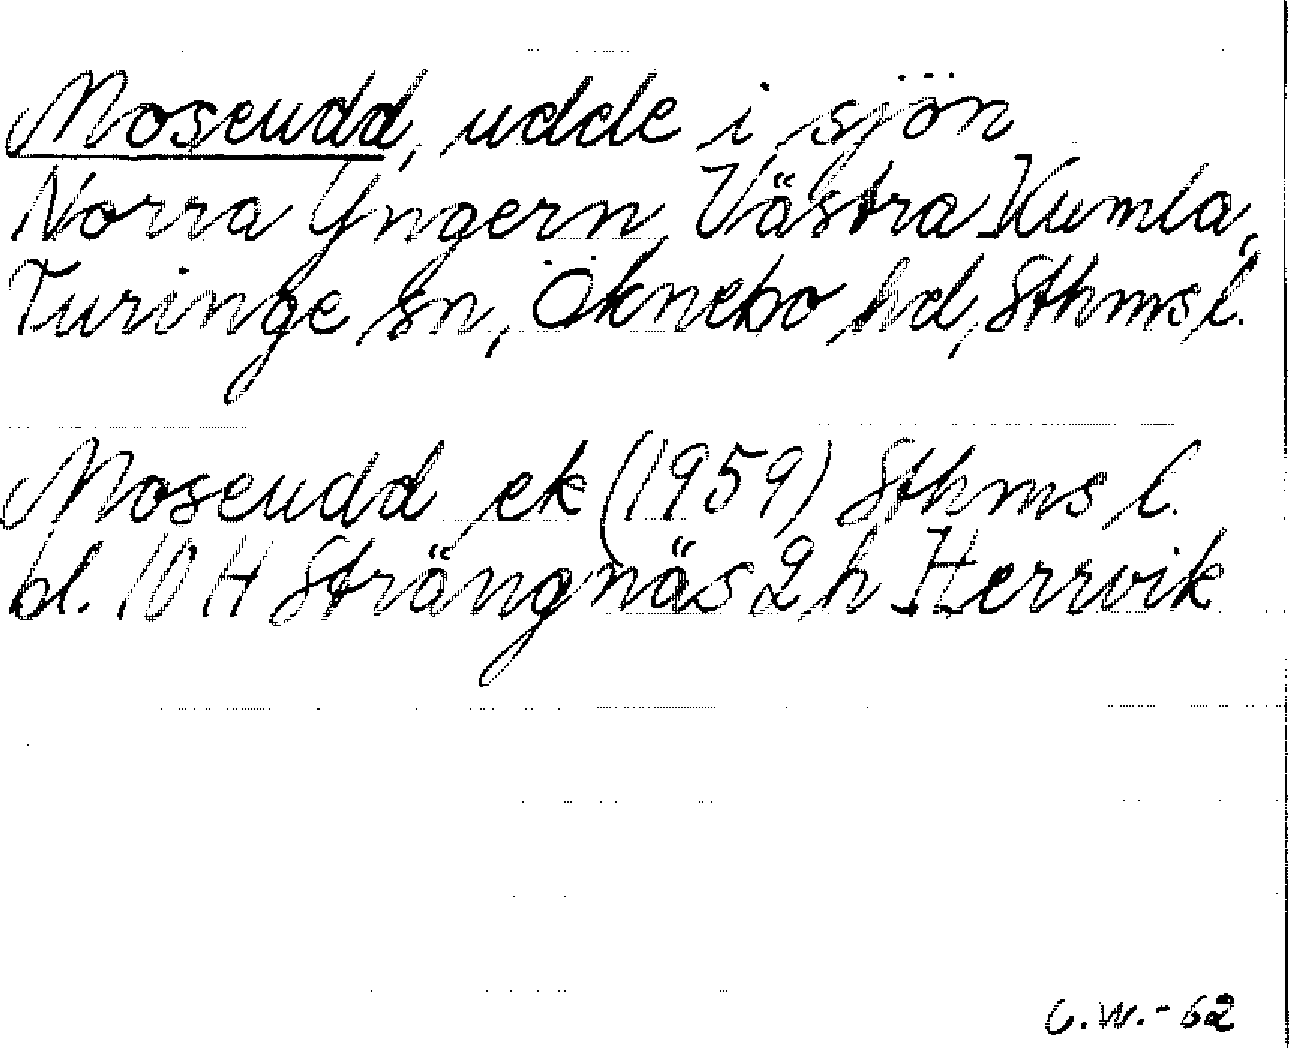 Moseudd, udde i sjön
Norra Yngern, Västra Kumla,
Turinge sn, Öknebo hd, Sthms l.
Moseudd ek (1959) Sthms l.
bl. 10 H Strängnäs 2 h Herrvik
C.W.-62